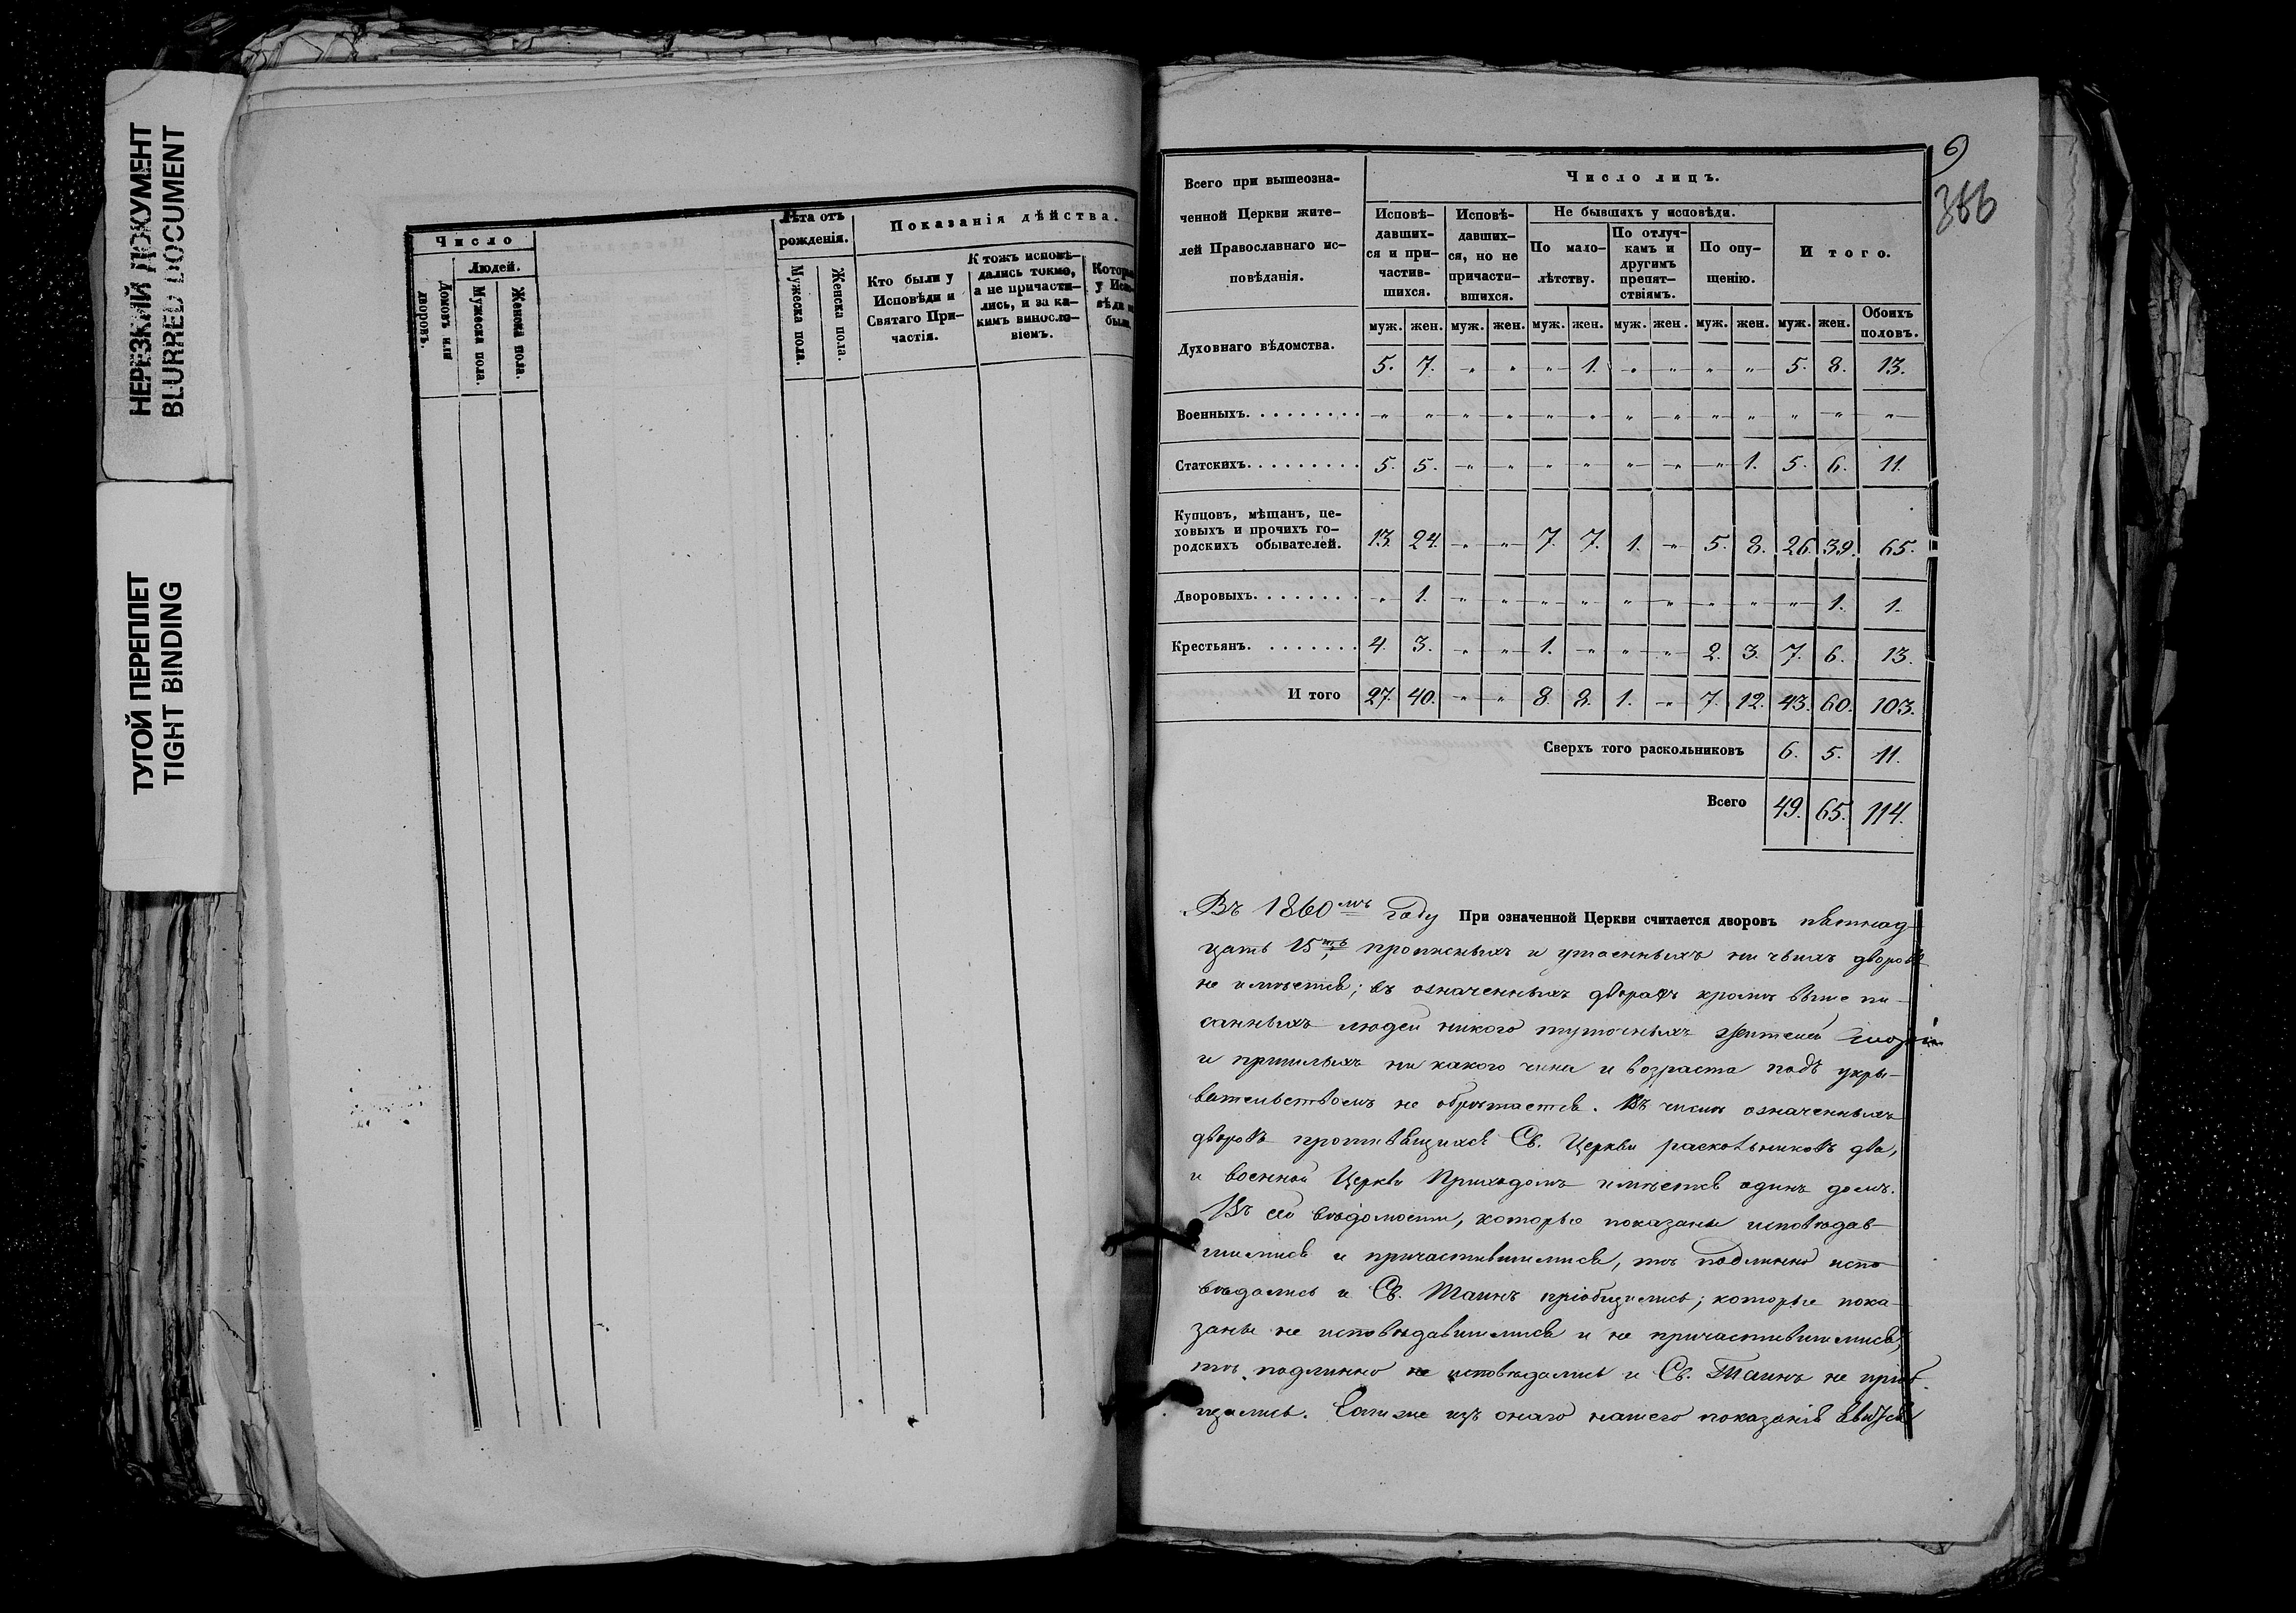 НЕРЕЗКИЙ ДОКУМЕНТ
BLURRED DOCUMENT
ТУГОЙ ПЕРЕПЛЕТ
TIGHT BINDING
Число
Домовъ или дворовъ.
Людей.
Мужеска пола.
Женска пола.
Лѣта отъ рожденія.
Мужеска пола.
Женска пола.
Показанія дѣйства.
Кто были у
Исповѣди и
Святаго При-
частія.
Ктожъ исповѣ-
дались токмо,
а не причасти-
лись, и за ка-
кимъ винословіемъ.
Которые
у Испо-
вѣди не
были.
6
366
Всего при вышеозна-
ченной Церкви жите-
лей Православнаго ис-
повѣданія.
Число лицъ.
Исповѣ-
давших-
ся и при-
частив-
шихся.
Исповѣ-
давших-
ся, но не
причасти-
вшихся.
Не бывшихъ у исповѣди.
По мало-
лѣтству.
По отлуч-
камъ и
другимъ
препят-
ствіямъ.
По опу-
щенію.
И того.
муж. жен. муж. жен. муж. жен. муж. жен. муж. жен. муж. жен. Обоихъ половъ.
Духовнаго вѣдомства. 5. 7. „ „ „ 1. „ „ „ „ 5. 8. 13.
Военныхъ. „ „ „ „ „ „ „ „ „ „ „ „ „
Статскихъ. 5. 5. „ „ „ „ „ „ „ 1. 5. 6. 11.
Купцовъ, мѣщанъ, це-
ховыхъ и прочихъ го-
родскихъ обывателей. 13. 24. „ „ 7. 7. 1. „ 5. 8. 26. 39. 65.
Дворовыхъ. „ 1. „ „ „ „ „ „ „ „ „ 1. 1.
Крестьянъ. 4. 3. „ „ 1. „ „ „ 2. 3. 7. 6. 13.
И того 27. 40. „ „ 8. 8. 1. „ 7. 12. 43. 60. 103.
Сверхъ того раскольниковъ 6. 5. 11.
Всего 49. 65. 114.
Въ 1860мъ году При означенной Церкви считается дворовъ пятнад-
цать 15ть, прописныхъ и утаенныхъ ни чьихъ дворовъ
не имѣется; въ означенныхъ дворахъ кромѣ выше пи-
санныхъ людей никого тутошныхъ жителей
и пришлыхъ ни какого чина и возраста подъ укры-
вательствомъ не обрѣтается. Въ числѣ означенныхъ
дворовъ противящихся Св. Церкви раскольниковъ два,
и военной Церкви Приходомъ имѣется одинъ домъ.
Въ сей вѣдомости, которые показаны исповѣдав-
шимися и причастившимися, тѣ подлинно испо-
вѣдались и Св. Таинъ пріобщились; которые пока-
заны не исповѣдавшимися и не причастившимися,
тѣ подлинно не исповѣдались и Св. Таинъ не пріоб-
щались. Если же изъ онаго нашего показанія